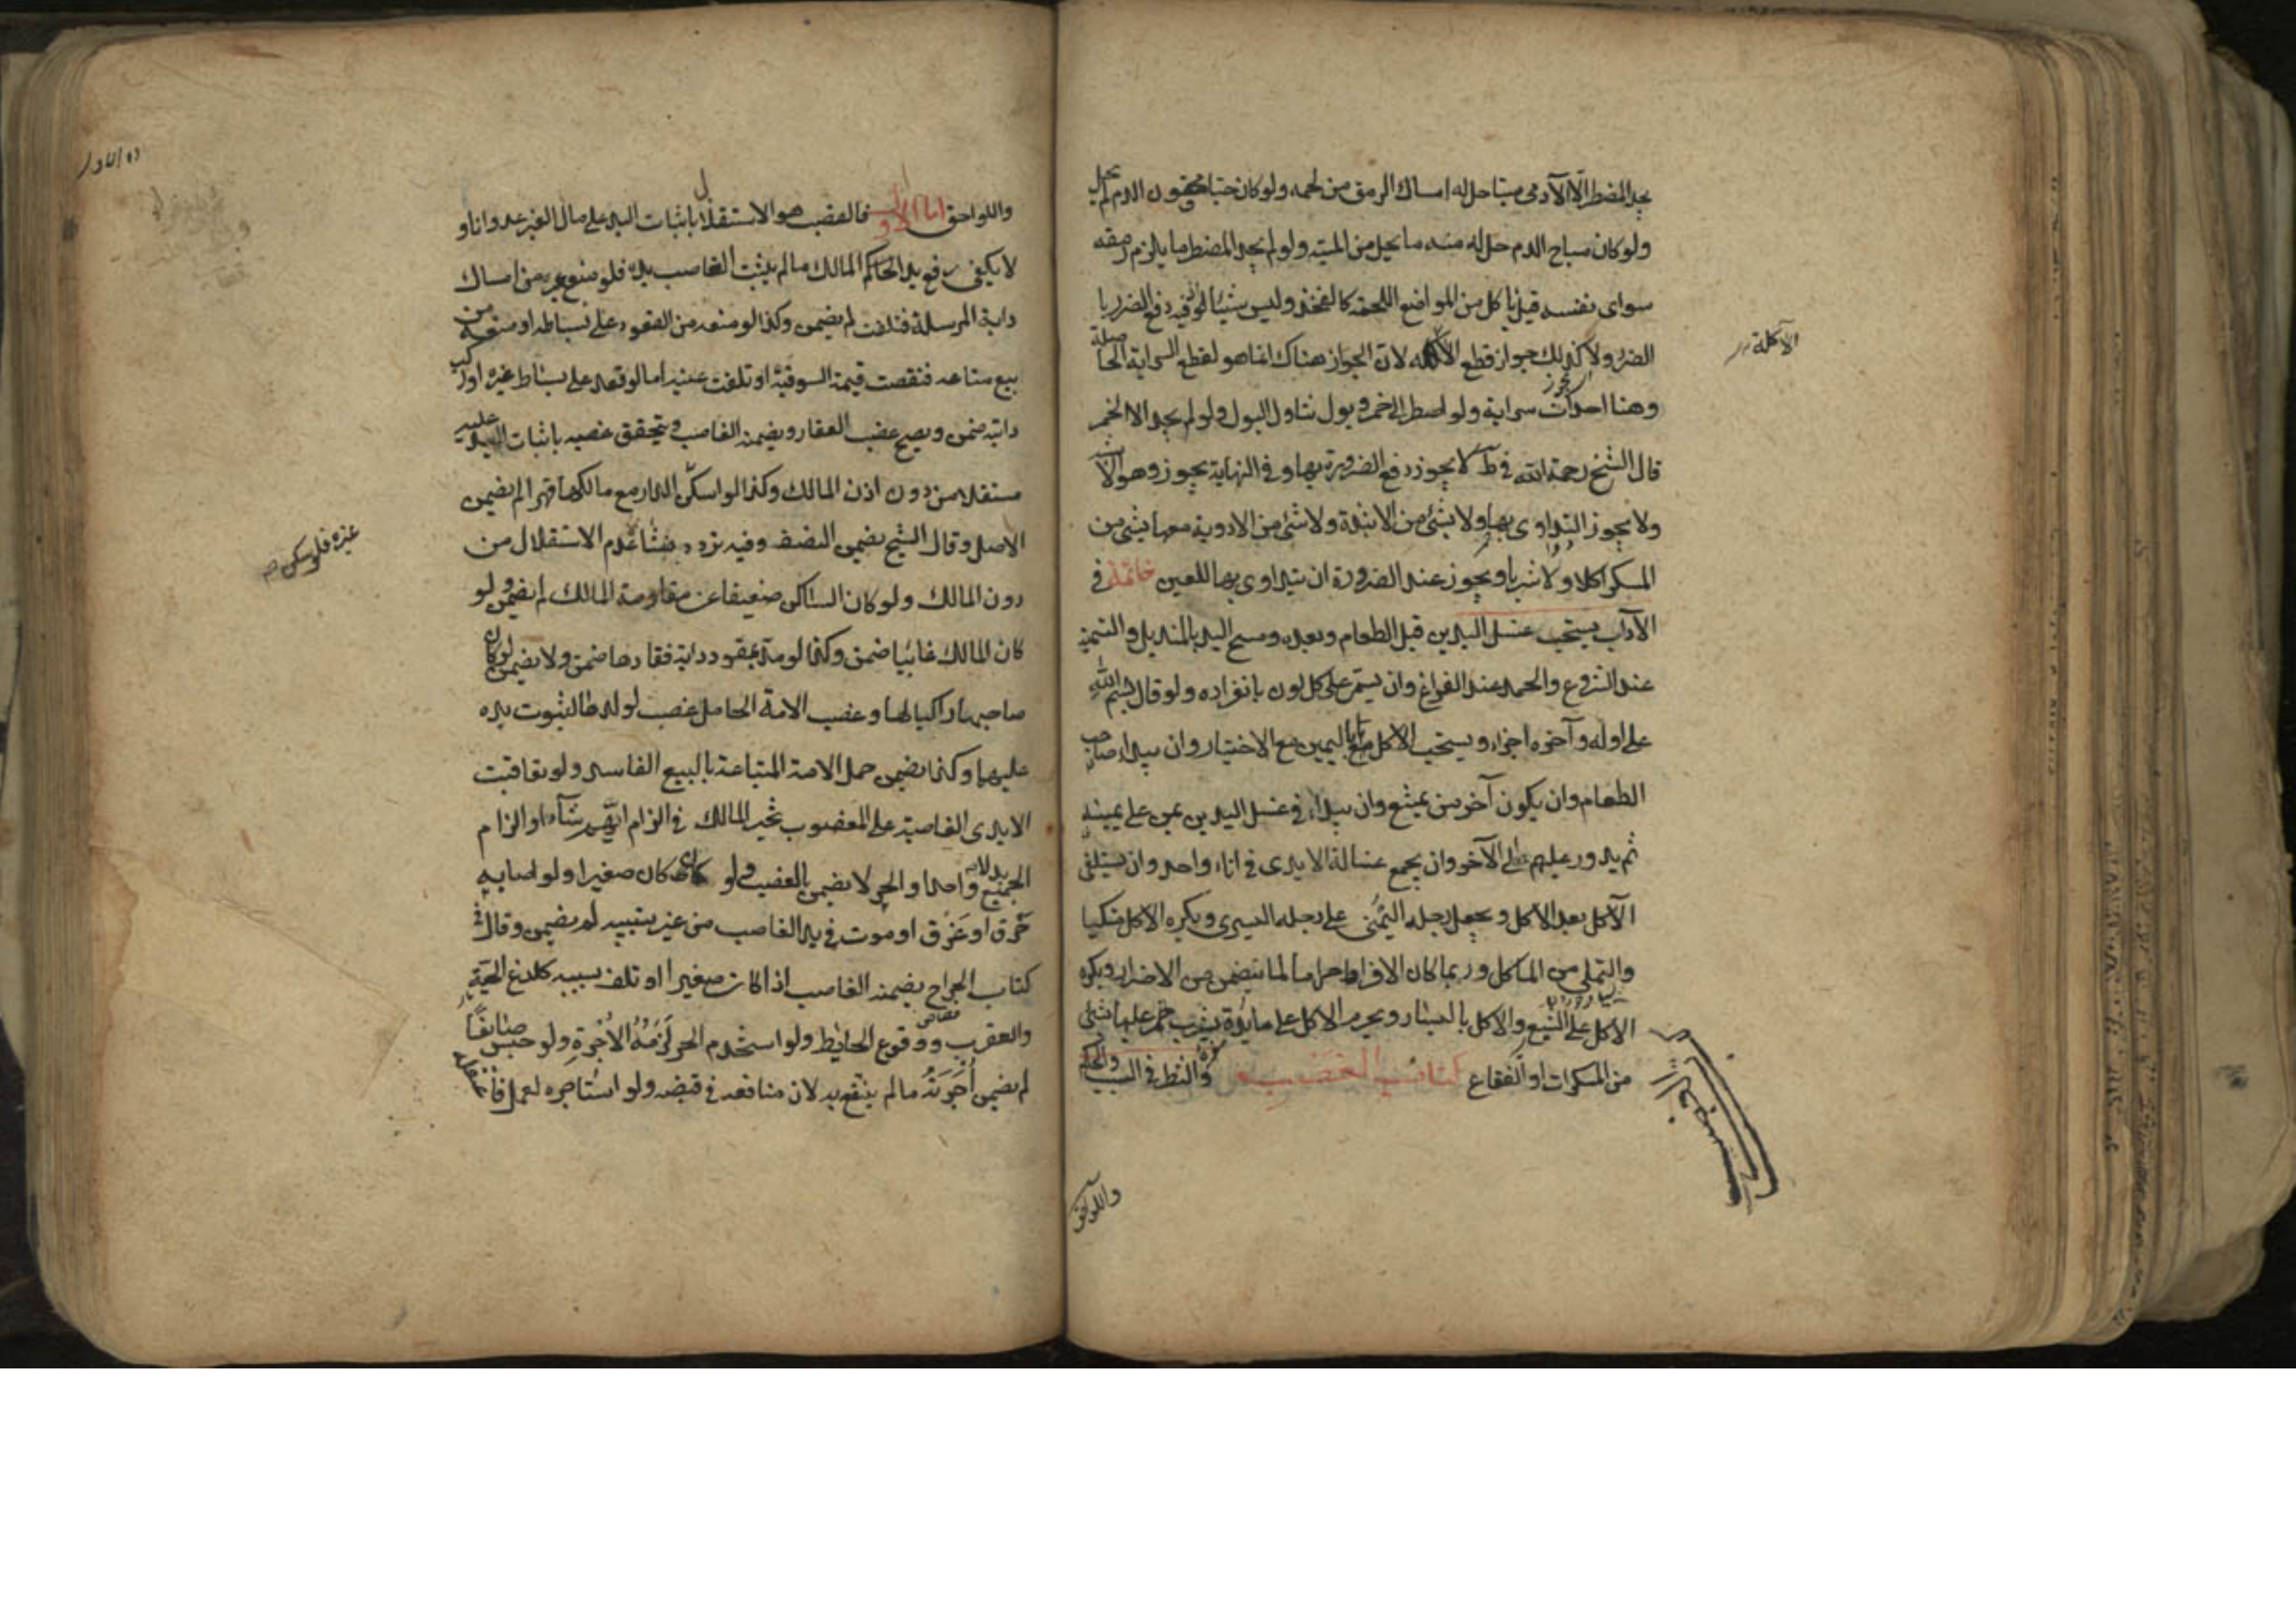 يجد المضطر الا الآدمى ميتا حل له امساك الرمق من لحمه ولو كان حيا محقون الدم لم يحل
ولو كان مباح الدم حل له منه ما يحل من الميته ولو لم يجد المضطر ما يلزم رمقه
سواى نفسه قيل ياكل من المواضع اللحمه كالفخذ وليس شيئا لو فيه دفع الضرر با
الضرر ولا كذلك جواز قطع الآكله لان الجواز هناك انما هو لقطع السراية الحاصلة
وهنا احداث سراية ولو اضطر الى خمر وبول تناول البول ولو لم يجد الا الخمر
قال الشيخ رحمة الله في ط لا يجوز دفع الضرورة بها وفي النهاية يجوز وهو الاشبه
ولا يجوز التداوى بها ولا بشئ من الانبذة ولا شئ من الادوية معها شئ من
المسكر اكلا ولا شربا ويجوز عند الضرورة ان يتداوى بها للعين خاتمة في
الآداب يستحب غسل اليدين قبل الطعام وبعده ومسح اليد بالمنديل والتسمية
عند الشروع والحمد عند الفراغ وان يسمى على كل لون بانفراده ولو قال بسم الله
على اوله وآخره اجزاء ويستحب الاكل باليمين مع الاختيار وان يبداء صاحب
الطعام وان يكون آخر من يمتنع وان يبداء في غسل اليدين بمن على يمينه
ثم يدور عليهم الى الآخر وان يجمع غسالة الايدى في اناء واحد وان يستلقى
الآكل بعد الاكل ويجعل رجله اليمنى على رجله اليسرى ويكره الاكل متكيا
والتملى من الماكل وربما كان الافراط حراما لما يتضمن من الاضرار ويكره
الاكل على الشبع والاكل باليسار ويحرم الاكل على مايدة يشرب عليها شئ
من المسكرات او الفقاع كتاب الغصب والنظر في السبب والحكم
الآكلة
واللواحق
واللواحق اما الاول فالغصب هو الاستقلال باثبات اليد على مال الغير عدوانا و
لا يكفى رفع يد المالك ما لم يثبت الغاصب يده فلو منع غيره من امساك
دابة المرسلة فتلفت لم يضمن وكذا لو منعه من القعود على بساطه او منعه من
بيع متاعه فنقصت قيمة السوقية او تلفت عينه اما لو قعد على بساط غيره او ركب
دابته ضمن ويصح غصب العقار ويضمنه الغاصب ويتحقق غصبه باثبات اليد عليه
مستقلا من دون اذن المالك وكذا لو اسكن الدار مع مالكها قهرا لم يضمن
الاصل وقال الشيخ يضمن النصف وفيه تردد منشاء عدم الاستقلال من
دون المالك ولو كان الساكن ضعيفا عن مقاومة المالك لم يضمن ولو
كان المالك غائبا ضمن وكذا لو مد بمقود دابة فقادها ضمن ولا يضمن لو كان
صاحبها راكبا لها وغصب الامة الحامل غصب لولدها لثبوت يده
عليها وكذا يضمن حمل الامة المبتاعة بالبيع الفاسد ولو تعاقبت
الايدى الغاصبة على المغصوب تخير المالك في الزام ايهم شاء او الزام
الجميع بدلا واحدا والحر لا يضمن بالغصب ولو كان صغيرا ولو اصابه
حرق او غرق او موت في يد الغاصب من غير تسبيبه لم يضمن وقال في
كتاب الجراح يضمنه الغاصب اذا كان صغيرا او تلف بسببه كلدغ الحية
والعقرب ووقوع الحايط ولو استخدم الحر لزمه الاجرة ولو حبس صانعا
لم يضمن اجرته ما لم ينتفع به لان منافعه في قبضه ولو استاجره لعمل فا
غيره فلو سكن